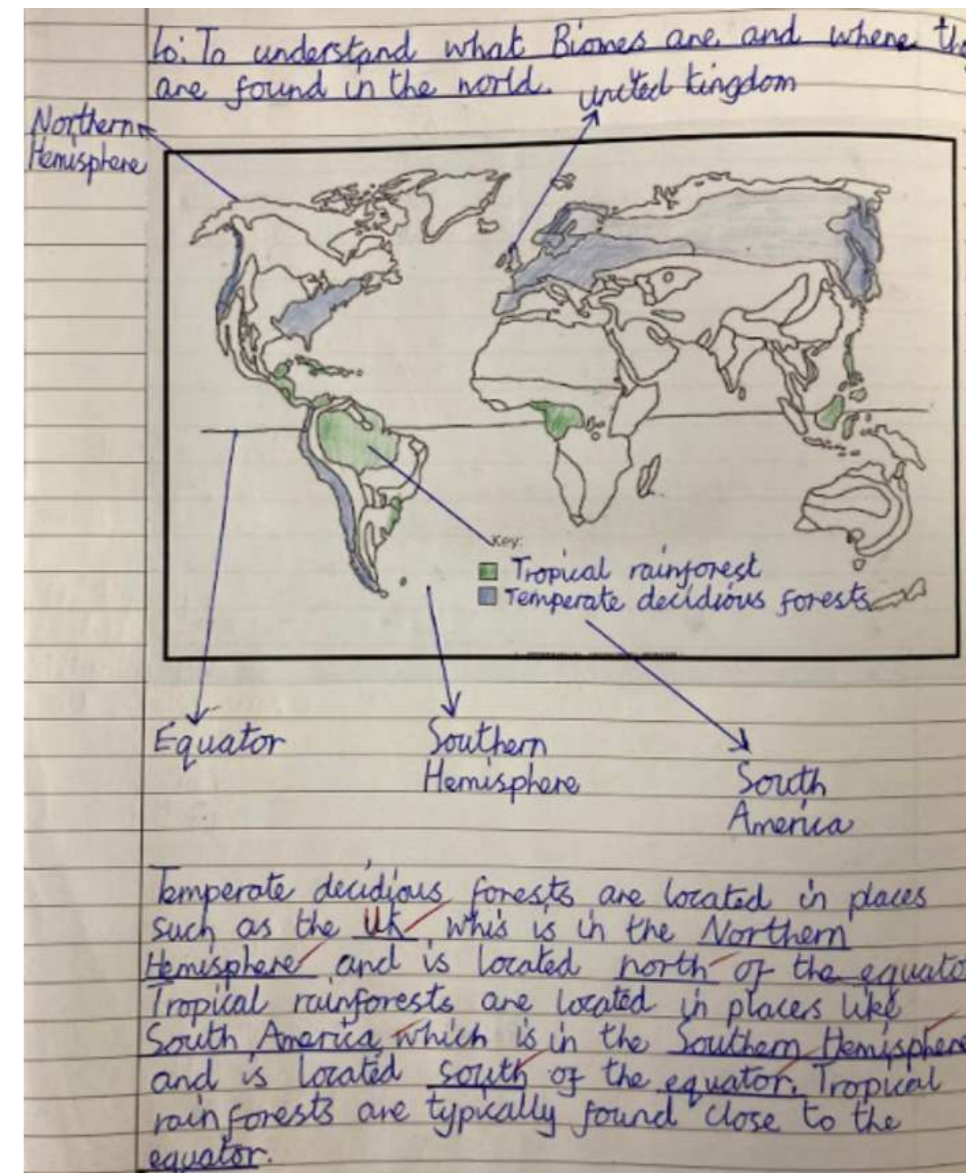 Lo: To understand what Biomes are and where the
are found in the world.
united kingdom
Northern
Hemisphere
Key:
Tropical rainforest
Temperate decidious forests
Equator
Southern
Hemisphere
South
America
Temperate decidious forests are located in places
such as the Uk whis is in the Northern
Hemisphere and is located north of the equato
Tropical rainforests are located in places like
South America which is in the Southern Hemisphere
and is located south of the equator. Tropical
rainforests are typically found close to the
equator.